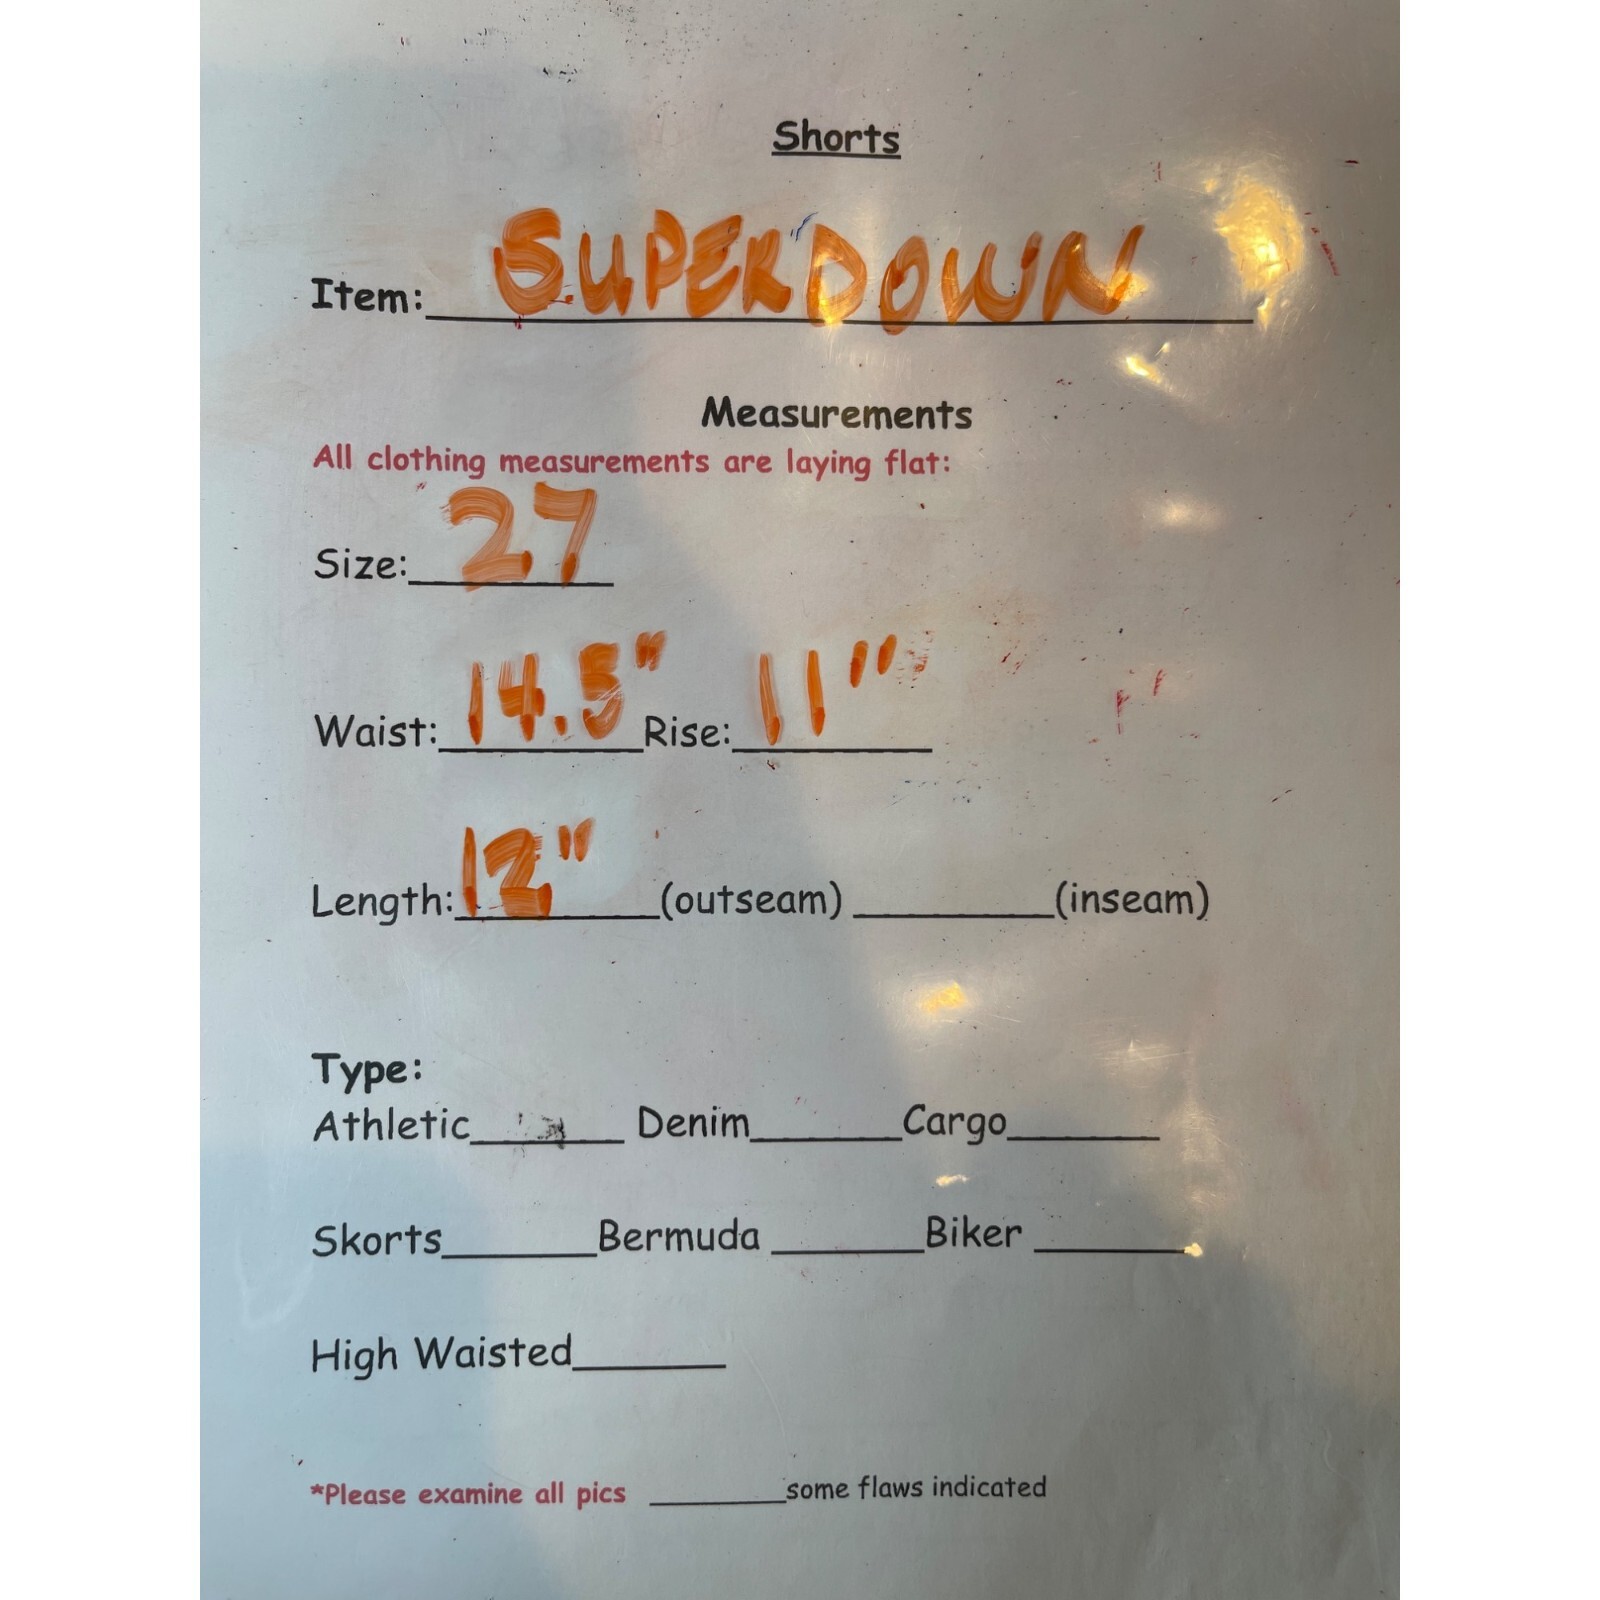 Shorts
Item: SUPERDOWN
Measurements
All clothing measurements are laying flat:
Size: 27
Waist: 14.5" Rise: 11"
Length: 12" (outseam) ______ (inseam)
Type:
Athletic______ Denim______ Cargo______
Skorts______ Bermuda ______ Biker ______
High Waisted______
*Please examine all pics ______ some flaws indicated